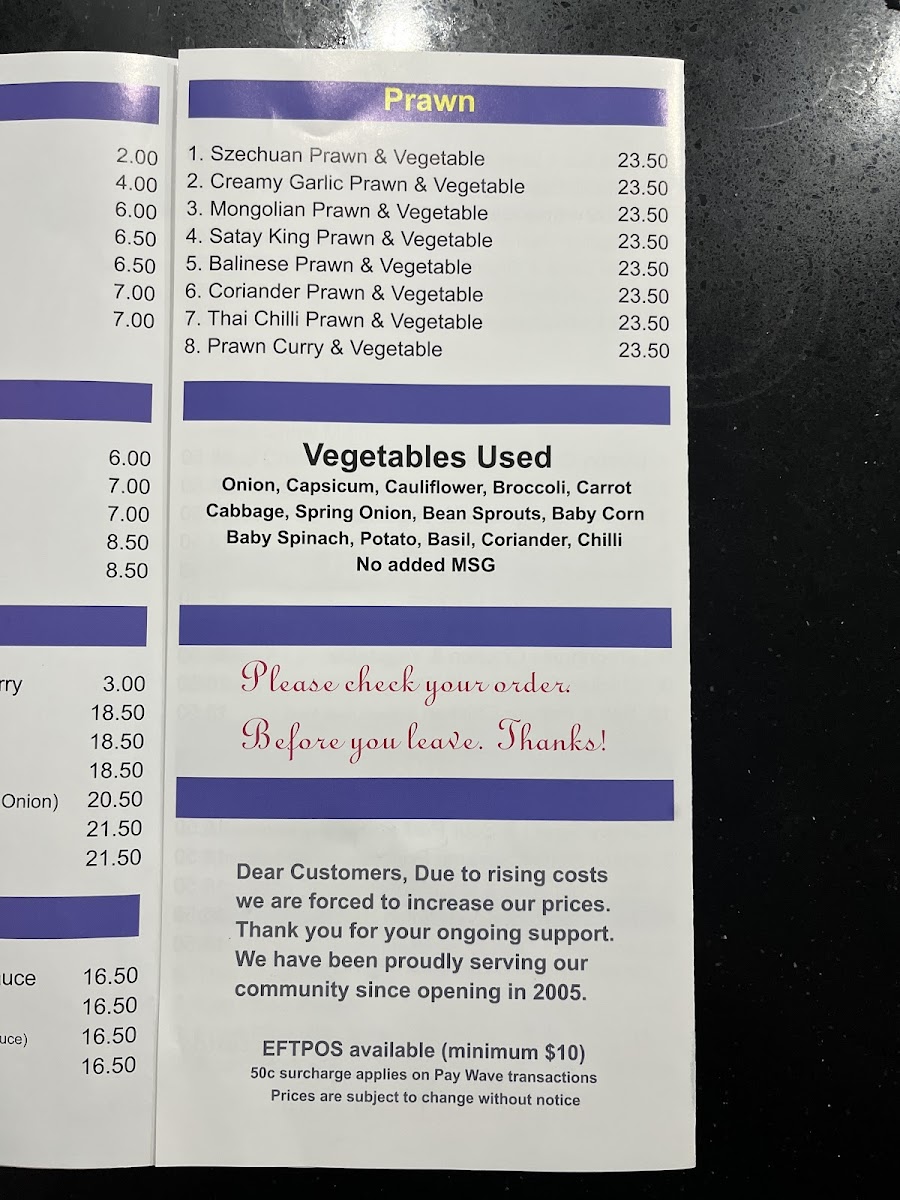 2.00
4.00
6.00
6.50
6.50
7.00
7.00
6.00
7.00
7.00
8.50
8.50
rry 3.00
18.50
18.50
18.50
Onion) 20.50
21.50
21.50
uce 16.50
16.50
uce) 16.50
16.50
Prawn
1. Szechuan Prawn & Vegetable 23.50
2. Creamy Garlic Prawn & Vegetable 23.50
3. Mongolian Prawn & Vegetable 23.50
4. Satay King Prawn & Vegetable 23.50
5. Balinese Prawn & Vegetable 23.50
6. Coriander Prawn & Vegetable 23.50
7. Thai Chilli Prawn & Vegetable 23.50
8. Prawn Curry & Vegetable 23.50
Vegetables Used
Onion, Capsicum, Cauliflower, Broccoli, Carrot
Cabbage, Spring Onion, Bean Sprouts, Baby Corn
Baby Spinach, Potato, Basil, Coriander, Chilli
No added MSG
Please check your order.
Before you leave. Thanks!
Dear Customers, Due to rising costs
we are forced to increase our prices.
Thank you for your ongoing support.
We have been proudly serving our
community since opening in 2005.
EFTPOS available (minimum $10)
50c surcharge applies on Pay Wave transactions
Prices are subject to change without notice